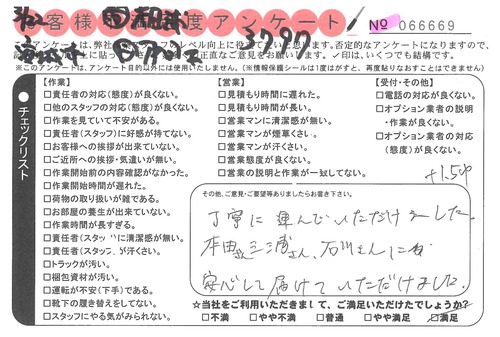 お客様満足度アンケート
№ 066669
3797
※このアンケートは、アンケート目的以外には使用いたしません。(※情報保護シールは1度はがすと、再度貼りなおすことはできません)
チェックリスト
【作業】
□責任者の対応(態度)が良くない。
□他のスタッフの対応(態度)が良くない。
□作業を見ていて不安がある。
□責任者(スタッフ)に好感が持てない。
□お客様への挨拶が出来ていない。
□ご近所への挨拶・気遣いが無い。
□作業開始前の内容確認がなかった。
□作業開始時間が遅れた。
□荷物の取り扱いが雑である。
□お部屋の養生が出来ていない。
□作業時間が長すぎる。
□責任者(スタッフ)に清潔感が無い。
□責任者(スタッフ)が汗くさい。
□トラックが汚い。
□梱包資材が汚い。
□運転が不安(下手)である。
□靴下の履き替えをしてない。
□スタッフにやる気がみられない。
【営業】
□見積もりに遅れた。
□見積もり時間が長い。
□営業マンに清潔感が無い。
□営業マンが煙草くさい。
□営業マンが汗くさい。
□営業態度が良くない。
□営業の説明と作業が一致してない。
【受付・その他】
□電話の対応が良くない。
□オプション業者の説明・作業が良くない。
□オプション業者の対応(態度)が良くない。
+1.5h
その他、ご意見・ご要望等ありましたらお書き下さい。
丁寧に運んでいただけました。
三浦さん、石川さんにも
安心して届けていただけました。
☆当社をご利用いただきまして、ご満足いただけたでしょうか?
□不満 □やや不満 □普通 □やや満足 ☑満足